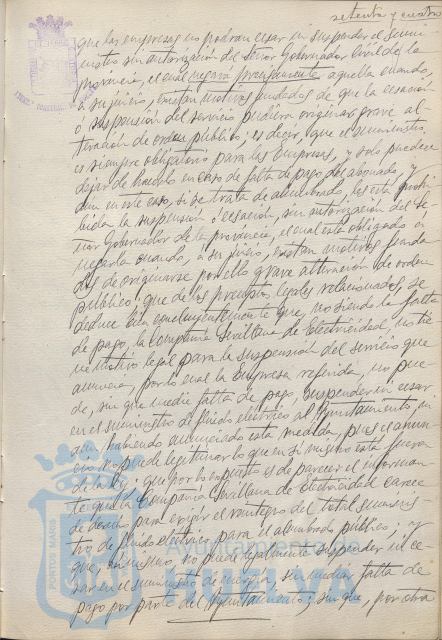 setenta y cuatro
que las empresas no podran cesar ni suspender el sumi-
nistro sin autorización del Señor Gobernador Civil de la
provincia, el cual negará precisamente aquella cuando,
a su juicio, existan motivos fundados de que la cesación
o suspensión del servicio pudiera originar grave al-
teración de orden público; es decir, que el suministro,
es siempre obligatorio para las Empresas, y solo puede
dejar de hacerlo en caso de falta de pago del abonado, y
aun en este caso, si se trata de alumbrado, les está prohi-
bida la suspensión o cesación, sin autorización del Se-
ñor Gobernador de la provincia, el cual está obligado a
negarla cuando, a su juicio, existan motivos funda-
dos de originarse por ello grave alteración de orden
público; que de los preceptos legales relacionados se
deduce bien concluyentemente que, no siendo la falta
de pago, la Compañia Sevillana de Electricidad, no tie-
ne motivo legal para la suspensión del servicio que
anuncia, por lo cual la Empresa referida, no pue-
de, sin que medie falta de pago, suspender ni cesar
en el suministro de fluido eléctrico al Ayuntamiento, ni
aun habiendo anunciado esta medida, pues el anun-
cio no puede legitimar lo que en si mismo está fuera
de la Ley; que por lo expuesto es de parecer el informan-
te que la Compañia Sevillana de Electricidad carece
de derecho para exigir el reintegro del total suminis-
tro de fluido eléctrico para el alumbrado público; y
que, asimismo, no puede legalmente suspender ni ce-
sar en el suministro de energia, sin mediar falta de
pago por parte del Ayuntamiento; sin que, por otra
PORTUS MARIS
Ayuntamiento de
HUELVA